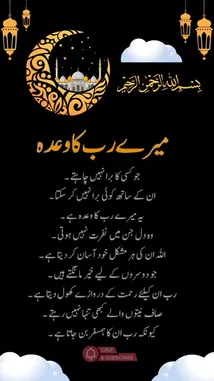 بسم الله الرحمن الرحيم
میرے رب کا وعدہ
جو کسی کا برا نہیں چاہتے۔
ان کے ساتھ کوئی برا نہیں کر سکتا۔
یہ میرے رب کا وعدہ ہے۔
وہ دل جن میں نفرت نہیں ہوتی۔
اللہ ان کی ہر مشکل خود آسان کر دیتا ہے۔
جو دوسروں کے لیے خیر مانگتے ہیں۔
رب ان کیلئے رحمت کے دروازے کھول دیتا ہے۔
صاف نیتوں والے کبھی تنہا نہیں رہتے۔
کیونکہ رب ان کا ہمسفر بن جاتا ہے۔
LIKE
& SUBSCRIBE